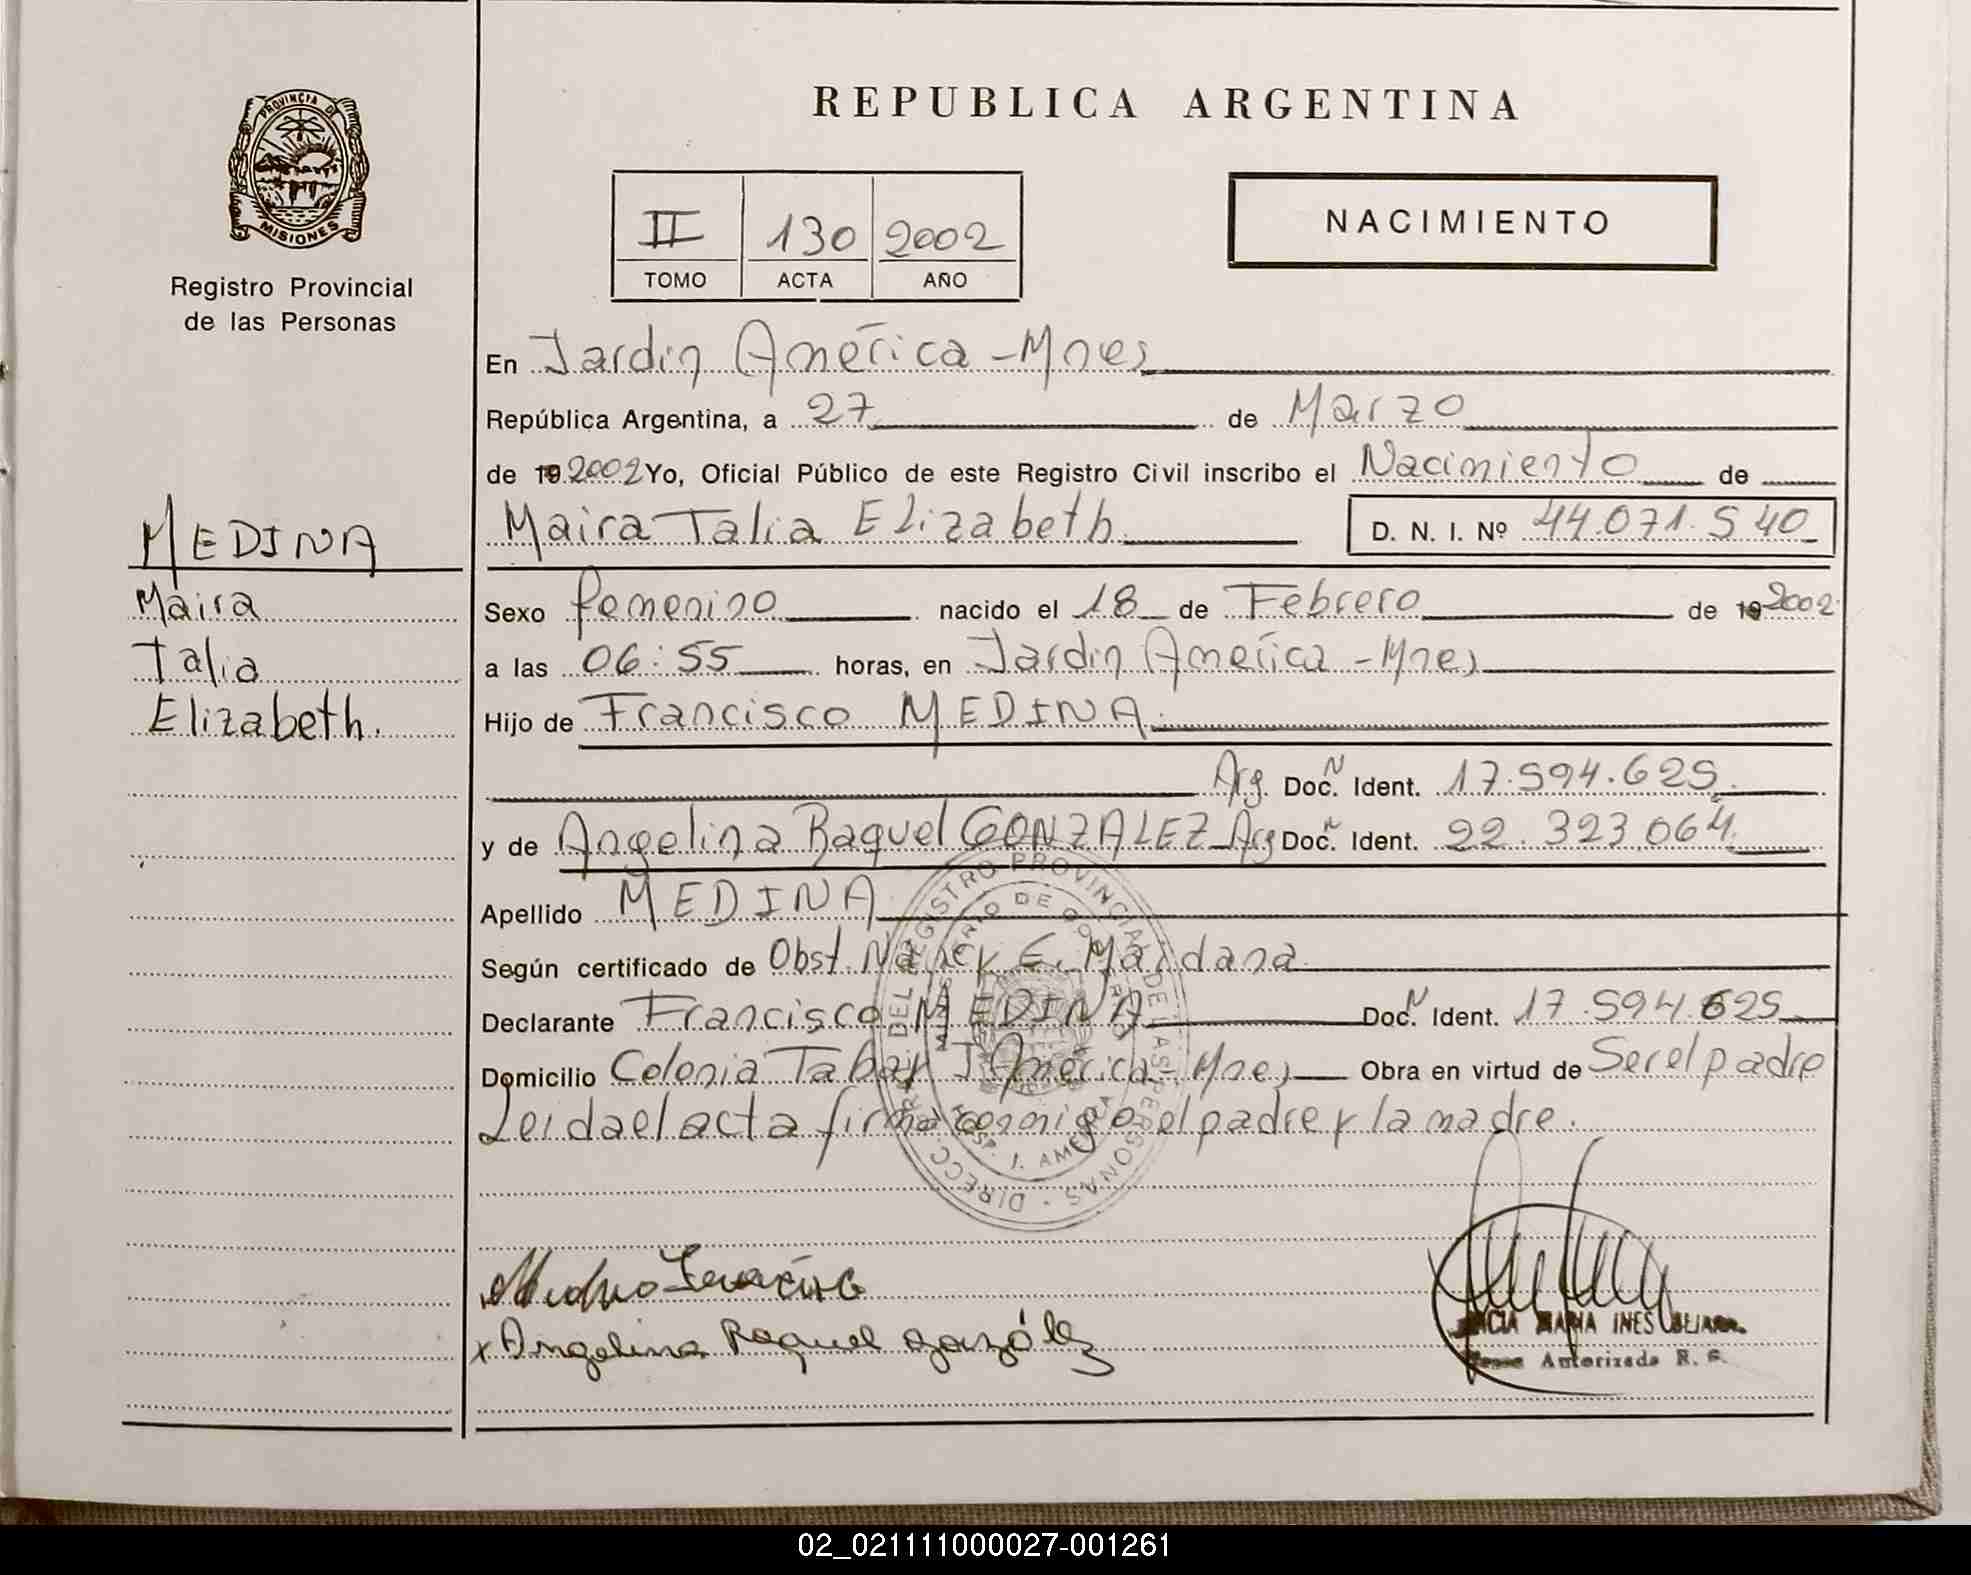 PROVINCIA DE
MISIONES
Registro Provincial
de las Personas
MEDINA
Maira
Talia
Elizabeth.
REPUBLICA ARGENTINA
II 130 2002
TOMO ACTA AÑO
NACIMIENTO
En Jardin América - Mnes
República Argentina, a 27 de Marzo
de 19 2002 Yo, Oficial Público de este Registro Civil inscribo el Nacimiento de
Maira Talia Elizabeth D. N. I. Nº 44.071.540
Sexo femenino nacido el 18 de Febrero de 19 2002
a las 06:55 horas, en Jardin América - Mnes
Hijo de Francisco MEDINA.
Arg. Doc. N Ident. 17.594.625
y de Angelina Raquel GONZALEZ Arg Doc. N Ident. 22.323.064
Apellido MEDINA
Según certificado de Obst. Nancy E. Maidana
Declarante Francisco MEDINA Doc. N Ident. 17.594.625
Domicilio Colonia Tabay J. América - Mnes Obra en virtud de Ser el padre
Leida el acta firma conmigo el padre y la madre.
DIRECC. DEL REGISTRO PROVINCIAL DE LAS PERSONAS
Medina Francisco
x Angelina Raquel González
MARIA INES
Autorizada R. P.
02_021111000027-001261